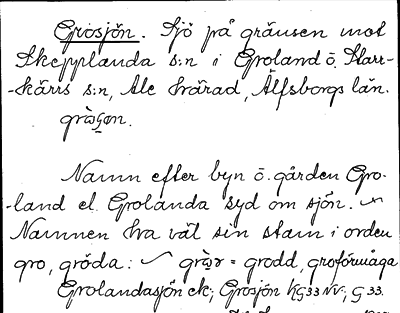 Grosjön. Sjö på gränsen mot
Skepplanda s:n i Groland o. Starr-
-kärrs s:n, Ale härad, Älfsborgs län.
Namn efter byn o. gården Gro-
-land el. Grolanda syd om sjön.
Namnen ha väl sin stam i orden
gro, gröda: = grodd, groförmåga
Grolandasjön ek; Grosjön